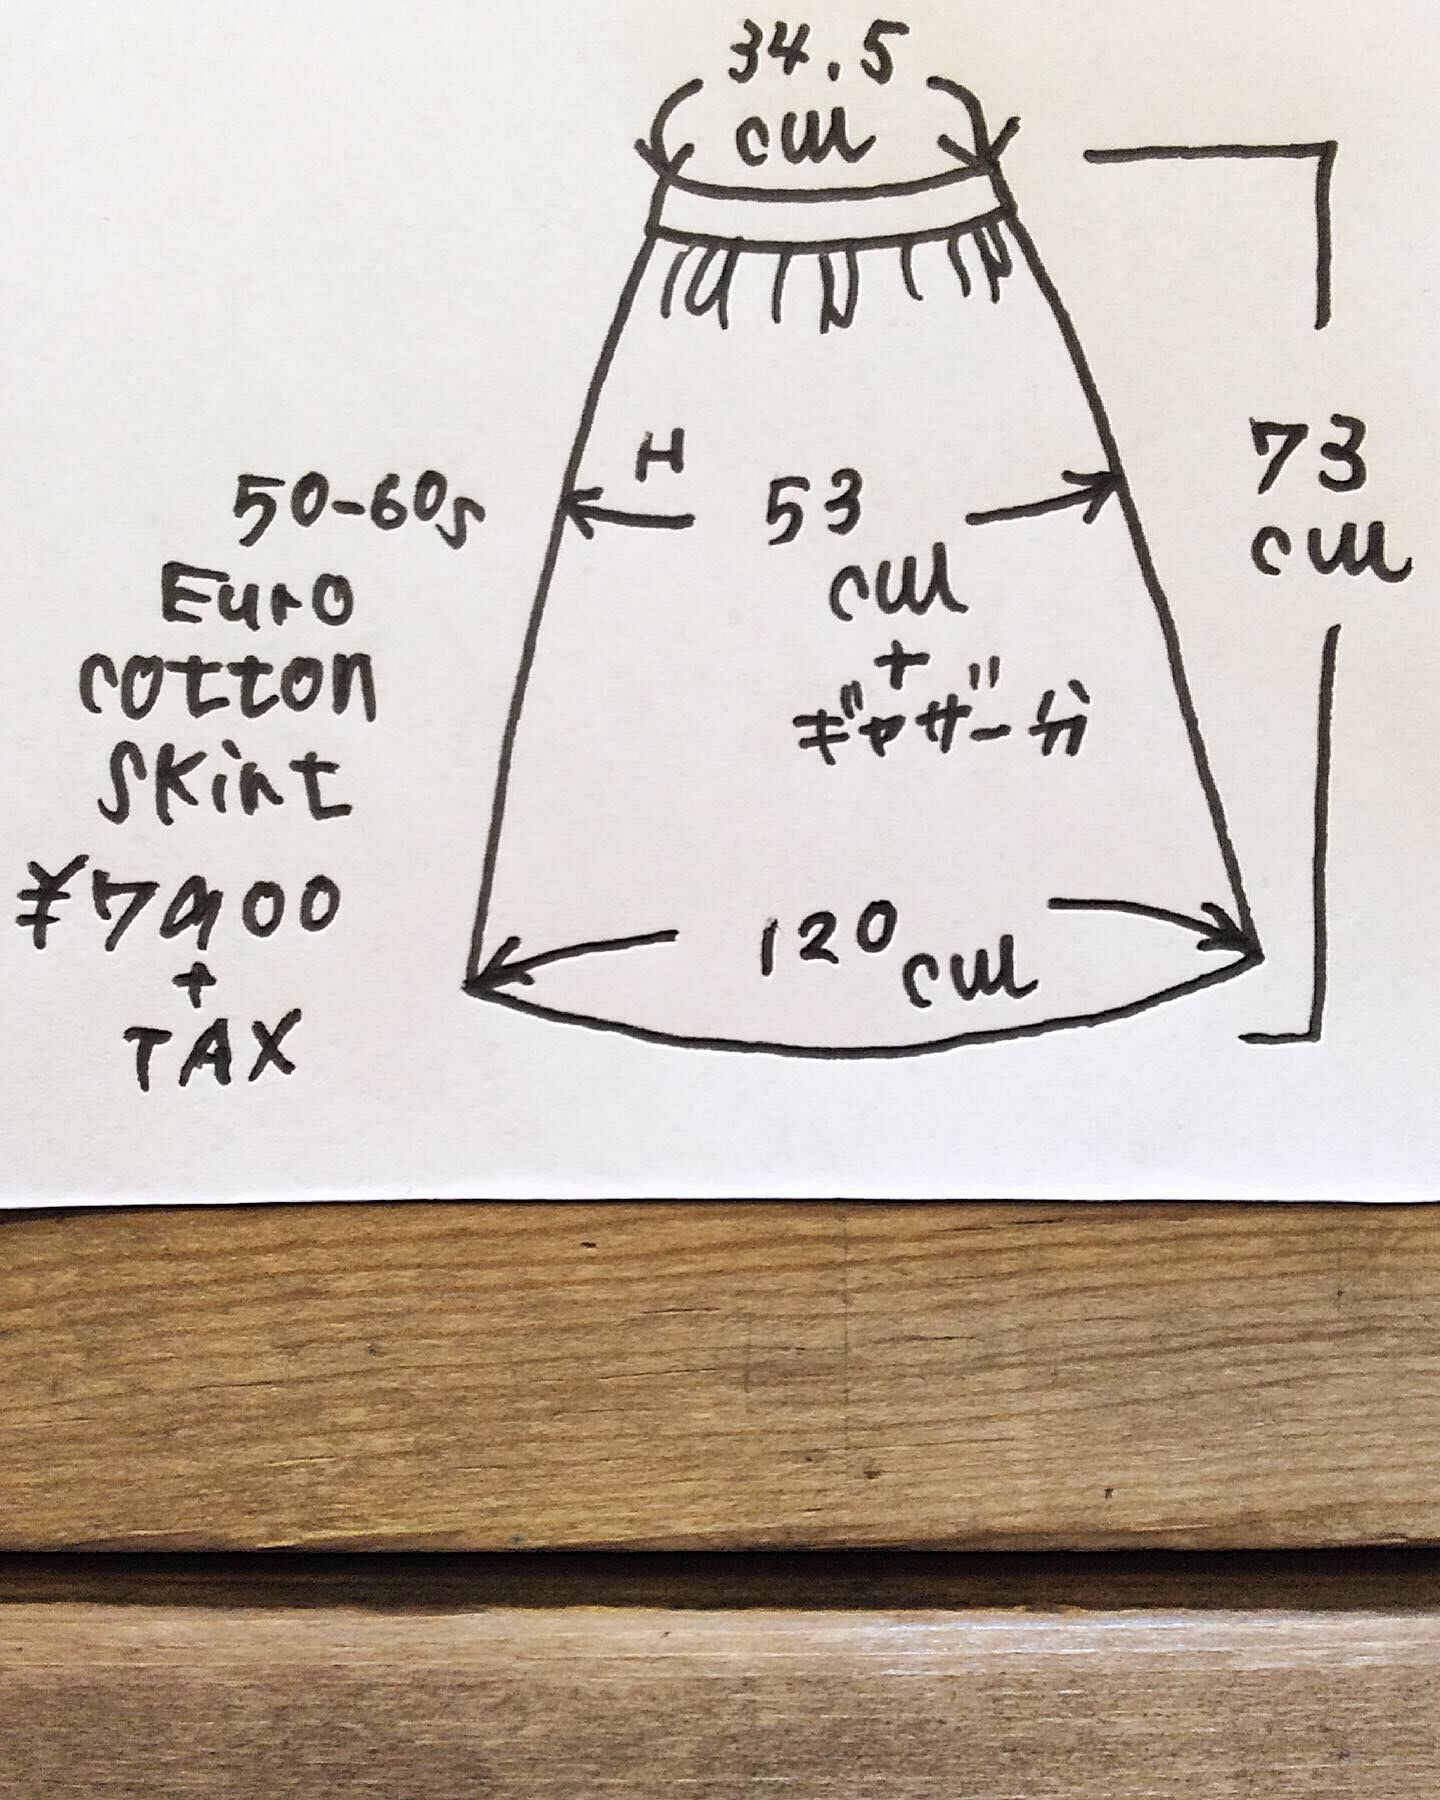 34.5
cm
H
53
cm
+
ギャザー分
73
cm
120cm
50-60s
Euro
cotton
skirt
¥7900
+
TAX